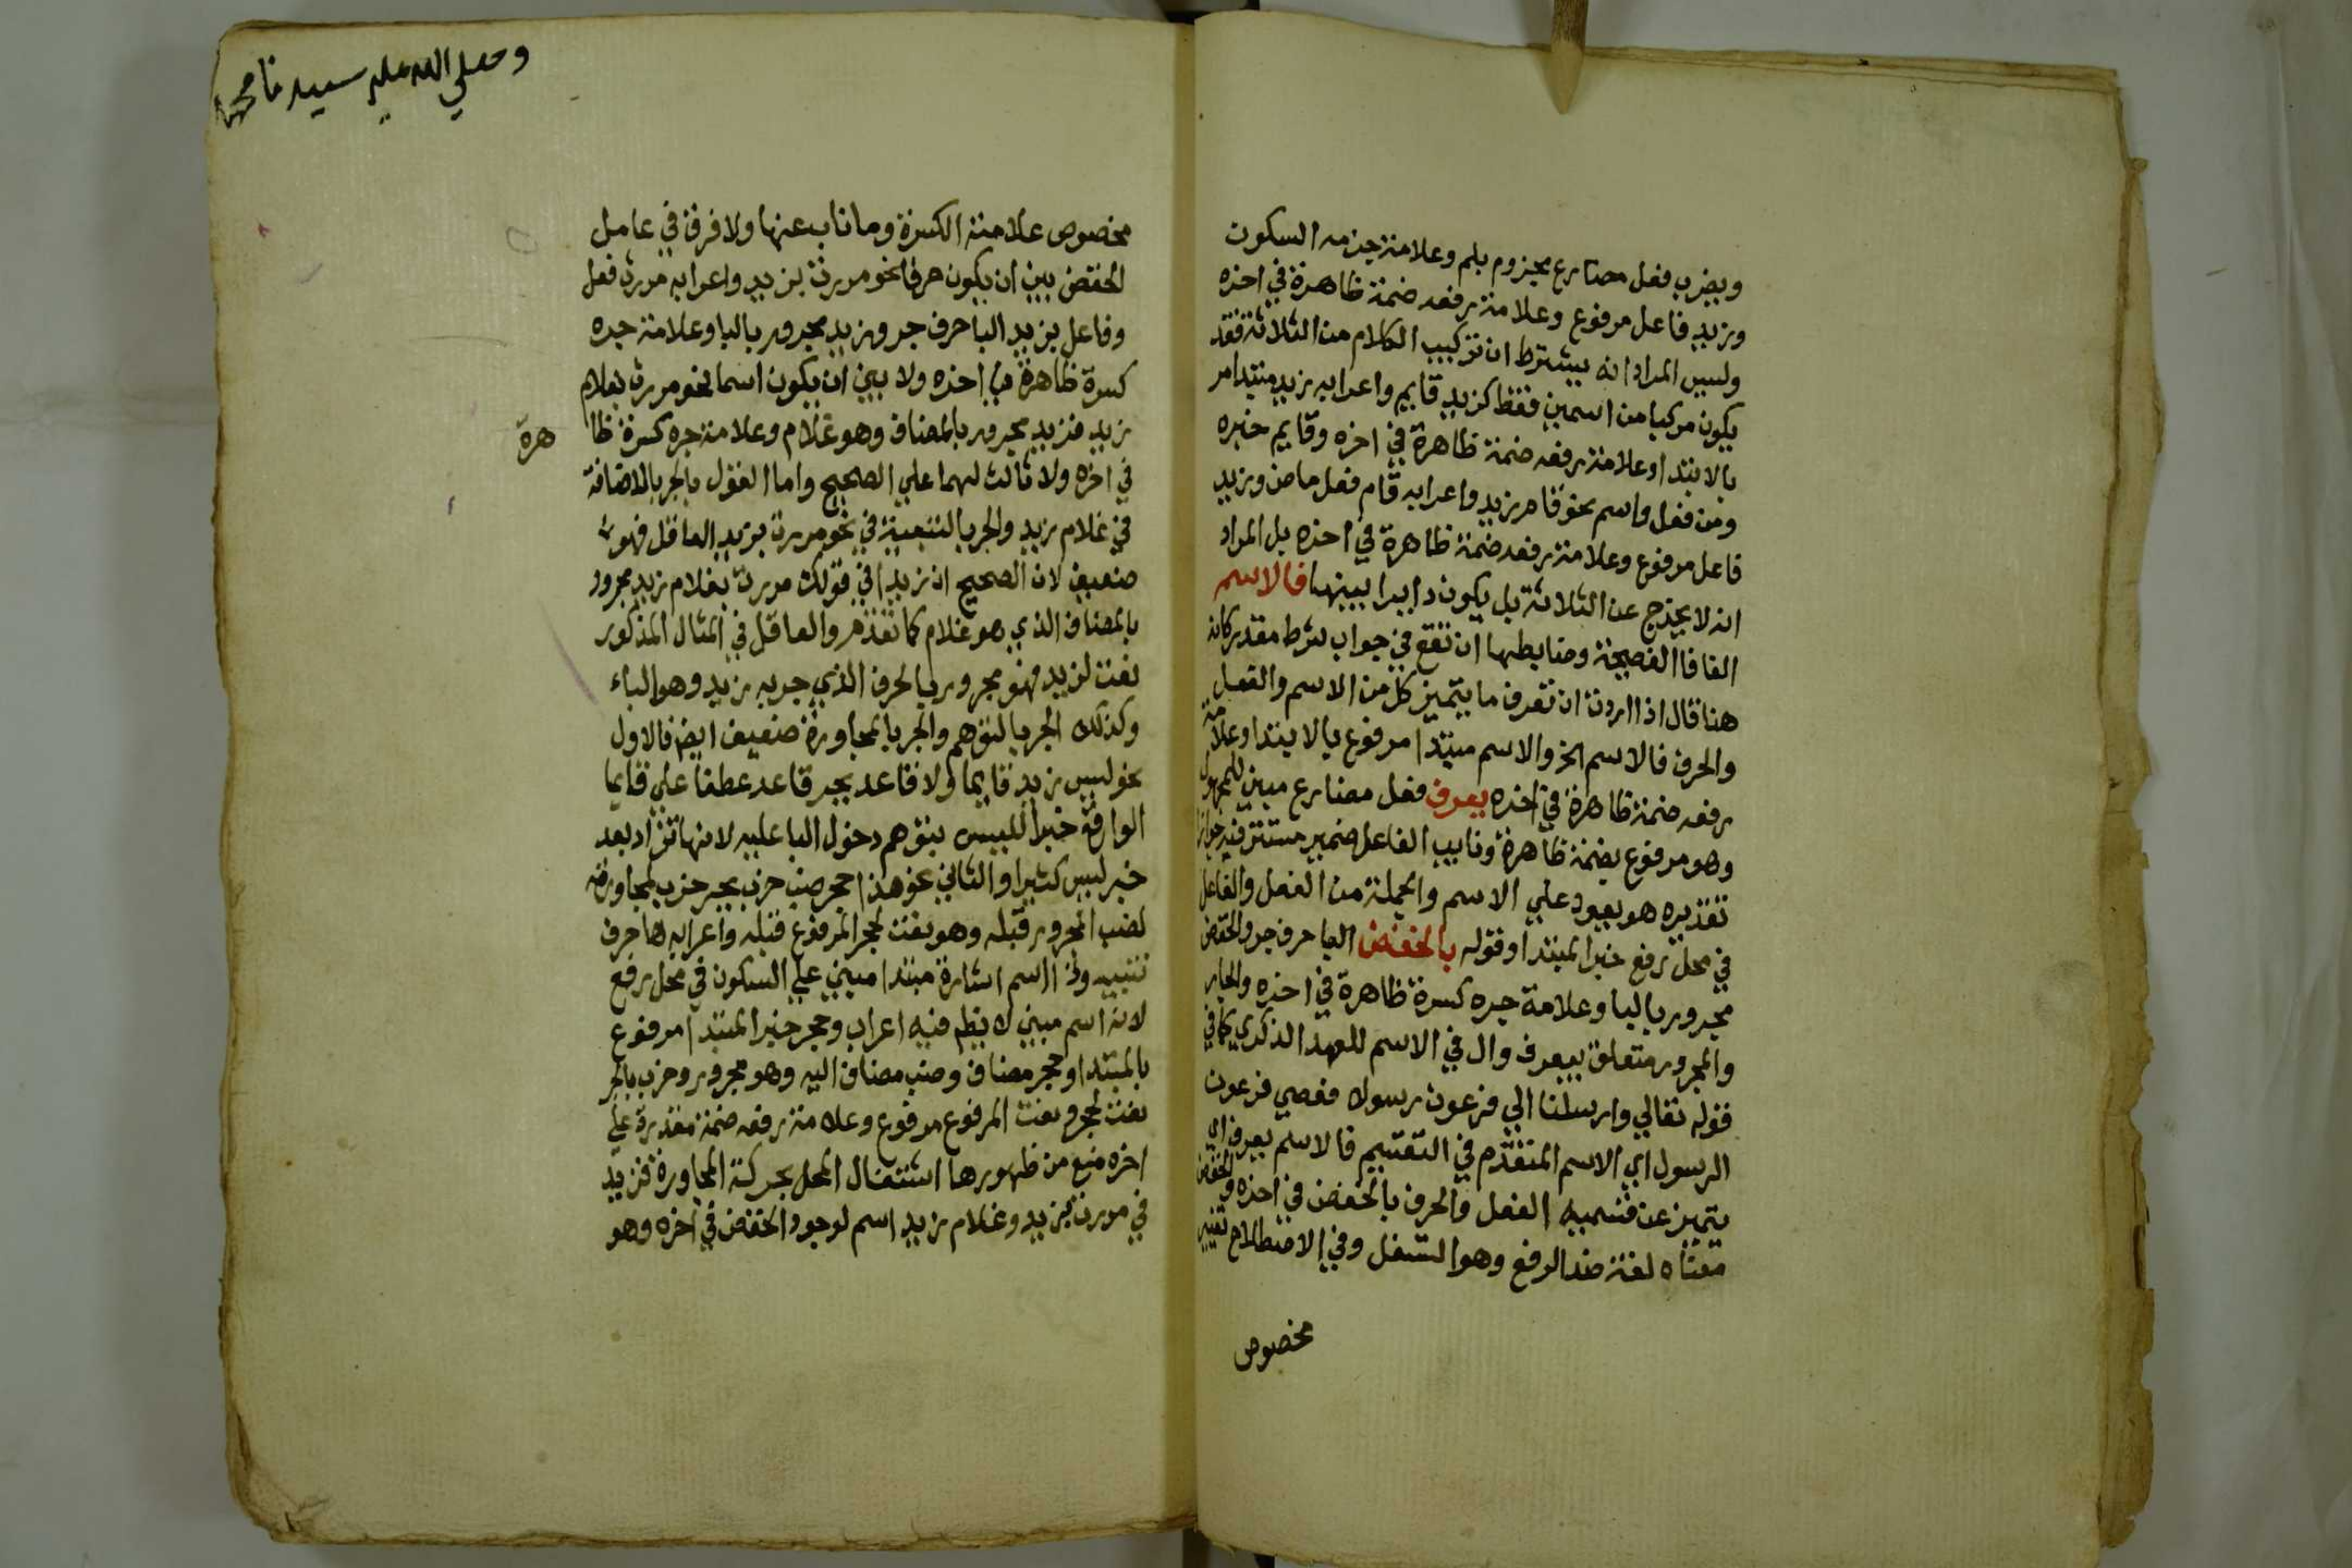 ويضرب فعل مضارع مجزوم بلم وعلامة جزمه السكون
وزيد فاعل مرفوع وعلامة رفعه ضمة ظاهرة في اخره
وليس المراد انه يشترط ان تركيب الكلام من الثلاثة فقد
يكون مركبا من اسمين فقط كزيد قايم واعرابه زيد مبتدا مر
بالابتدا وعلامة رفعه ضمة ظاهرة في اخره وقايم خبره
ومن فعل واسم نحو قام زيد واعرابه قام فعل ماض وزيد
فاعل مرفوع وعلامة رفعه ضمة ظاهرة في اخره بل المراد
انه لا يخرج عن الثلاثة بل يكون دايرا بينها فالاسم
الفا فا الفصيحة وضابطها ان تقع في جواب شرط مقدر كانه
هنا قال اذا اردت ان تعرف ما يتميز كل من الاسم والفعل
والحرف فالاسم الخ والاسم مبتدا مرفوع بالابتدا وعلامة
رفعه ضمة ظاهرة في اخره يعرف فعل مضارع مبني للمجهول
وهو مرفوع بضمة ظاهرة ونايب الفاعل ضمير مستتر فيه جوازا
تقديره هو يعود علي الاسم والجملة من الفعل والفاعل
في محل رفع خبر المبتدا وقوله بالخفض البا حرف جر والخفض
مجرور بالبا وعلامة جره كسرة ظاهرة في اخره والجار
والمجرور متعلق بيعرف وال في الاسم للعهد الذكري كما في
قوله تعالي وارسلنا الي فرعون رسولا فعصي فرعون
الرسول اي الاسم المتقدم في التقسيم فالاسم يعرف اي
يتميز عن قسميه الفعل والحرف بالخفض في اخره والخفض
معناه لغة ضد الرفع وهو التسفل وفي الاصطلاح تغيير
مخصوص
وصلي الله علي سيدنا محمد
مخصوص علامته الكسرة وما ناب عنها ولا فرق في عامل
الخفض بين ان يكون حرفا نحو مررت بزيد واعرابه مررت فعل
وفاعل بزيد البا حرف جر وزيد مجرور بالبا وعلامة جره
كسرة ظاهرة في اخره ولا بين ان يكون اسما نحو مررت بغلام
زيد فزيد مجرور بالمضاف وهو غلام وعلامة جره كسرة ظا هرة
في اخره ولا ثالث لهما علي الصحيح واما القول بالجر بالاضافة
في غلام زيد والجر بالتبعية في نحو مررت بزيد العاقل فهو
ضعيف لان الصحيح ان زيد في قولك مررت بغلام زيد مجرور
بالمضاف الذي هو غلام كما تقدم والعاقل في المثال المذكور
نعت لزيد فهو مجرور بالحرف الذي جر به زيد وهو الباء
وكذلك الجر بالتوهم والجر بالمجاورة ضعيف ايض فالاول
نحو ليس زيد قايما ولا قاعد بجر قاعد عطفا علي قايما
الواقع خبرا لليس بتوهم دخول البا عليه لانها تزاد بعد
خبر ليس كثيرا والثاني نحو هذا حجر ضب خرب بجر خرب لمجاورته
لضب المجرور قبله وهو نعت لحجر المرفوع قبله واعرابه ها حرف
تنبيه وذا اسم اشارة مبتدا مبني علي السكون في محل رفع
لانه اسم مبني لا يظهر فيه اعراب وحجر خبر المبتدا مرفوع
بالمبتدا وحجر مضاف وضب مضاف اليه وهو مجرور وخرب بالجر
نعت لحجر ونعت المرفوع مرفوع وعلامة رفعه ضمة مقدرة علي
اخره منع من ظهورها اشتغال المحل بحركة المجاورة فزيد
في مررت بزيد وغلام زيد اسم لوجود الخفض في اخره وهو